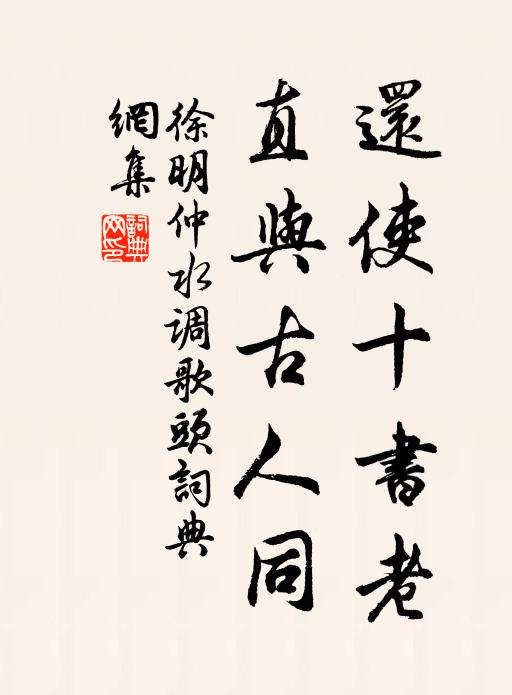 還使十書老
直與古人同
徐明仲水調歌頭詞典
網集
詞典網印